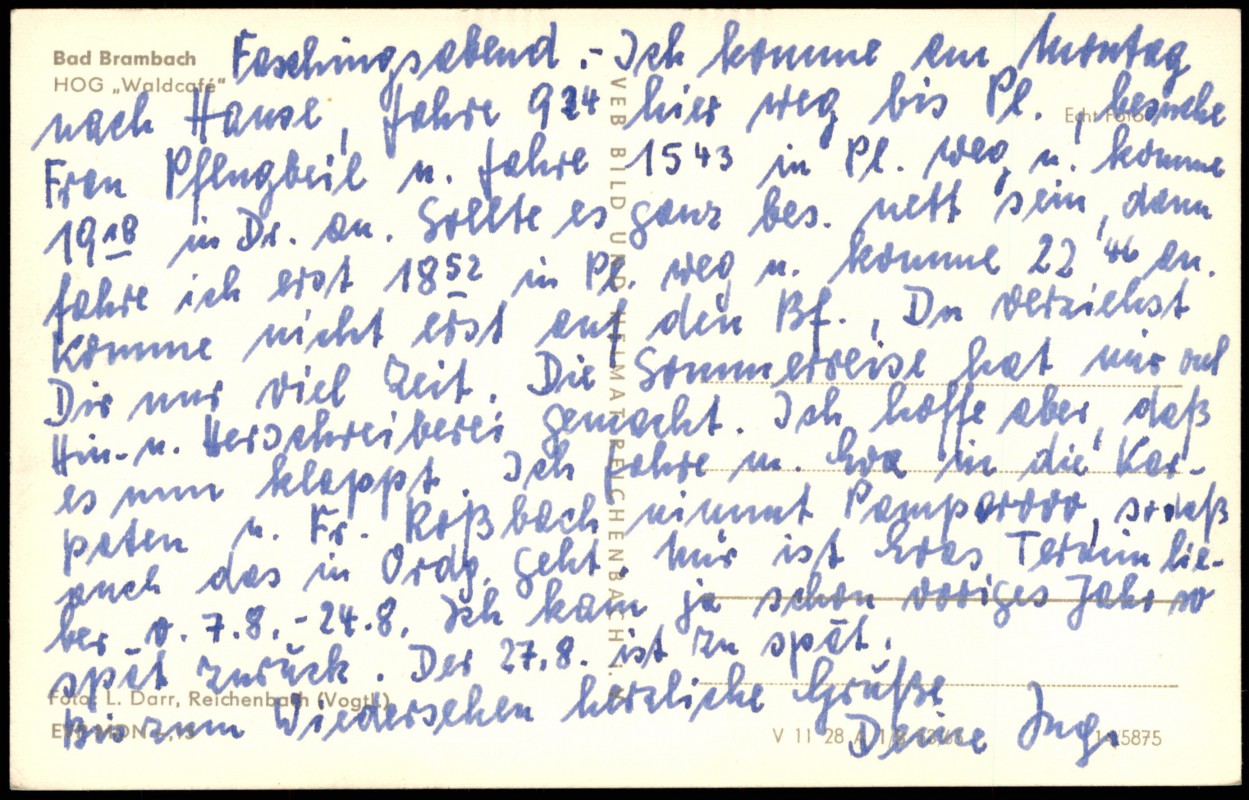 Bad Brambach
HOG „Waldcafé"
Faschingsabend.- Ich komme am Montag
nach Hause, fahre 924 hier weg bis Pl., besuche
Frau Pflugbeil u. fahre 1543 in Pl. weg u. komme
1918 in Dr. an. Sollte es ganz bes. nett sein, dann
fahre ich erst 1852 in Pl. weg u. komme 22 46 an.
Komme nicht erst auf den Bf., Du verziehst
Dir nur viel Zeit. Die Sommerreise hat mir viel
Hin- u. Herschreiberei gemacht. Ich hoffe aber, daß
es nun klappt. Ich fahre m. Eva in die Kar-
paten u. Fr. Roßbach nimmt Pamporovo, sodaß
auch das in Ordg. geht. Mir ist Evas Termin lie-
ber v. 7.8.-24.8. Ich kam ja schon voriges Jahr so
spät zurück. Der 27.8. ist zu spät.
Bis zum Wiedersehen herzliche Grüße
Deine Ing.
VEB BILD UND HEIMAT REICHENBACH i. V.
Echt Foto
Foto: L. Darr, Reichenbach (Vogtl.)
V 11 28 A 1/
5875